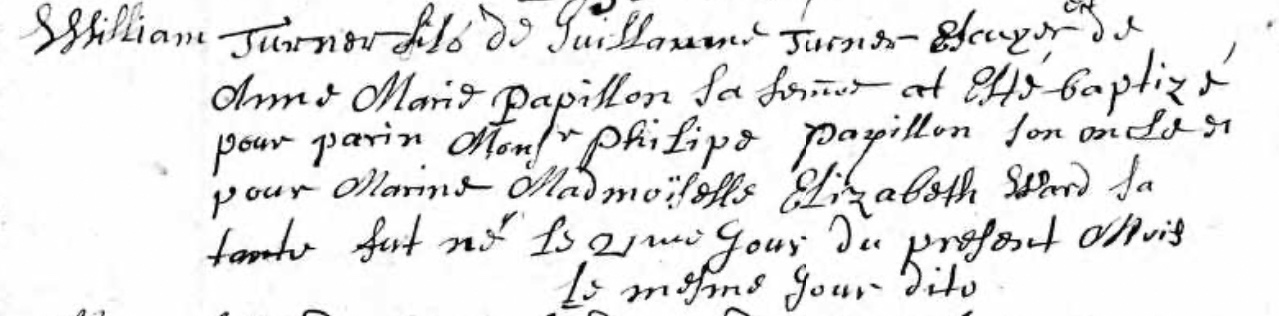 William Turner fils de Guillaume Turner Escuyer et de
Anne Marie Papillon sa feme at Esté baptizé
pour parin Monsr Philipe Papillon son oncle et
pour Marine Madmoïselle Elizabeth Ward sa
tante fut né le 21me Jour du present Mois
le mesme Jour dito